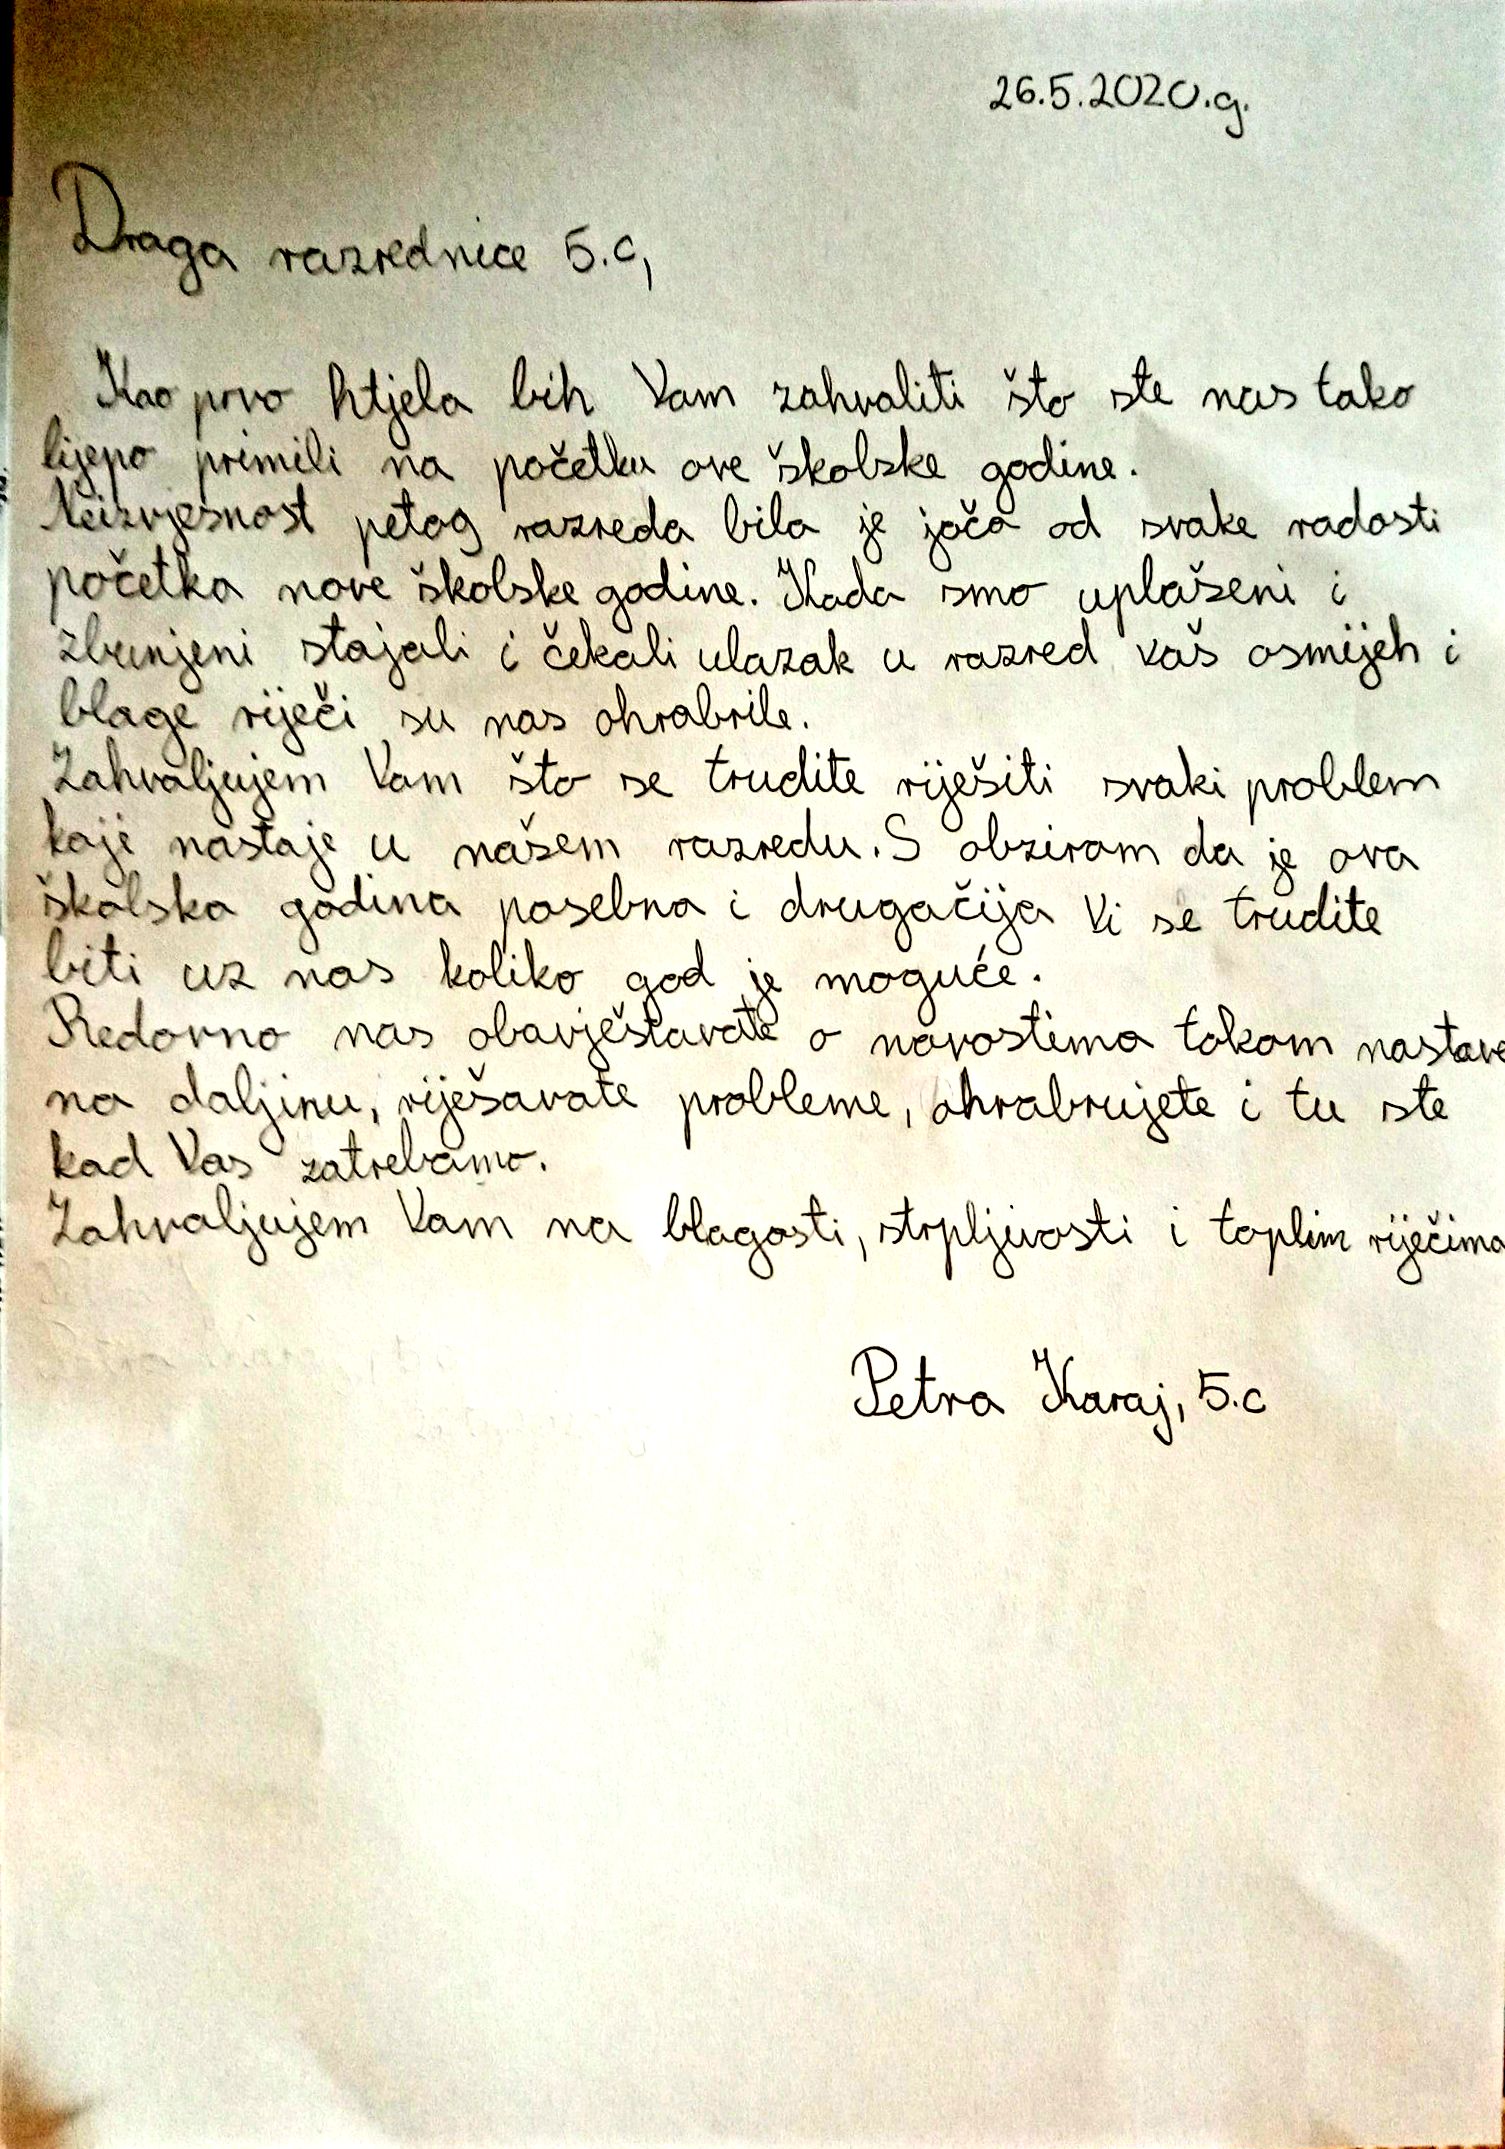 26.5.2020.g.
Draga razrednice 5.c,
Kao prvo htjela bih Vam zahvaliti što ste nas tako
lijepo primili na početku ove školske godine.
Neizvjesnost petog razreda bila je jača od svake radosti
početka nove školske godine. Kada smo uplašeni i
zbunjeni stajali i čekali ulazak u razred vaš osmijeh i
blage riječi su nas ohrabrile.
Zahvaljujem Vam što se trudite riješiti svaki problem
koji nastaje u našem razredu. S obzirom da je ova
školska godina posebna i drugačija Vi se trudite
biti uz nas koliko god je moguće.
Redovno nas obavještavate o novostima tokom nastave
na daljinu, riješavate probleme, ohrabrujete i tu ste
kad Vas zatrebamo.
Zahvaljujem Vam na blagosti, strpljivosti i toplim riječima
Petra Karaj, 5.c